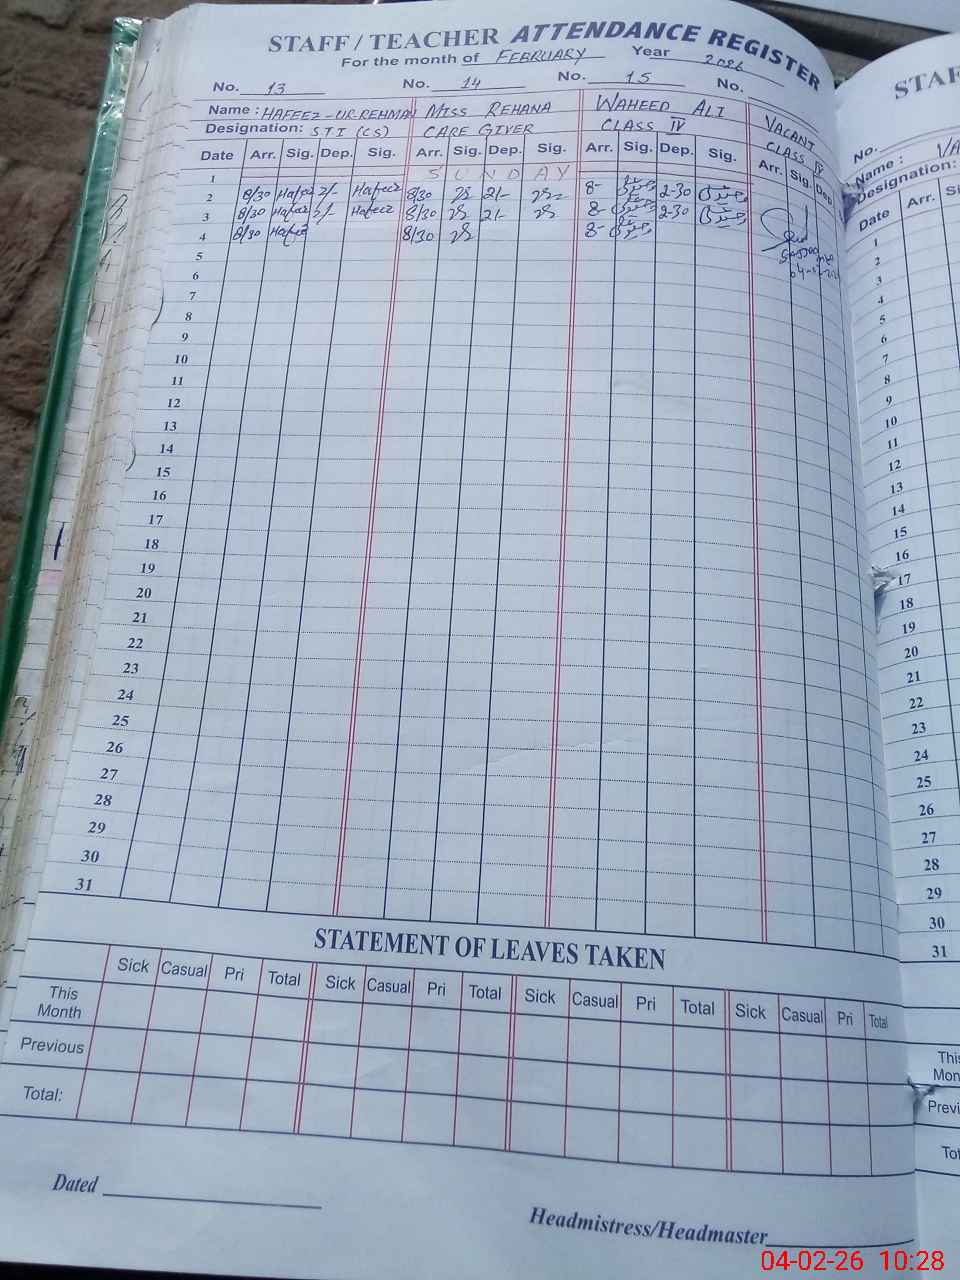 STAFF / TEACHER ATTENDANCE REGISTER
For the month of FEBRUARY Year 2026
No. 13 No. 14 No. 15 No.
Name : HAFEEZ-UR.REHMAN MISS REHANA WAHEED ALI VACANT
Designation: STI (CS) CARE GIVER CLASS IV CLASS IV
Date Arr. Sig. Dep. Sig. Arr. Sig. Dep. Sig. Arr. Sig. Dep. Sig. Arr. Sig. Dep
1 SUNDAY
2 8/30 Hafeez 2/- Hafeez 8/30 2/- 8- 2-30
3 8/30 Hafeez 2/- Hafeez 8/30 2/- 8- 2-30
4 8/30 Hafeez 8/30 8-
5
6
7
8
9
10
11
12
13
14
15
16
17
18
19
20
21
22
23
24
25
26
27
28
29
30
31
STATEMENT OF LEAVES TAKEN
Sick Casual Pri Total Sick Casual Pri Total Sick Casual Pri Total Sick Casual Pri Total
This Month
Previous
Total:
Dated
Headmistress/Headmaster
STAF
No.
Name : VA
Designation:
Date Arr. Si
1
2
3
4
5
6
7
8
9
10
11
12
13
14
15
16
17
18
19
20
21
22
23
24
25
26
27
28
29
30
31
This
Mon
Previ
Tot
04-02-26 10:28